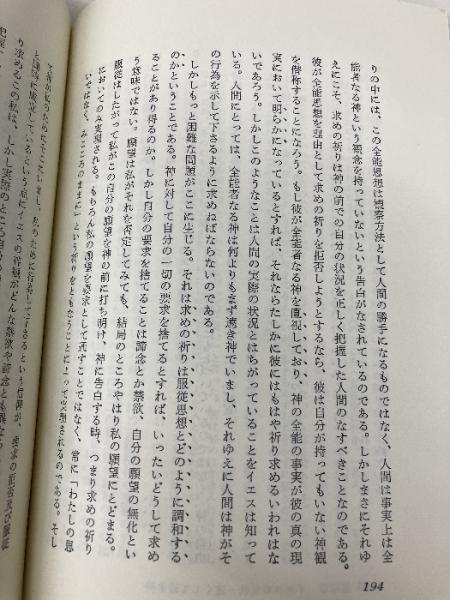 りの中には、この全能思想は観察方法として人間の勝手になるものではなく、人間は事実上は全
能者なる神という観念を持っていないという告白がなされているのである。しかしまさにそれゆ
えにこそ、求めの祈りは神の前での自分の状況を正しく把握した人間のなすべきことなのである。
彼が全能思想を理由として求めの祈りを拒否しようとするなら、彼は自分が持ってもいない神観
を僭称することになろう。もし彼が全能者なる神を直視しており、神の全能の事実が彼の真の現
実において明らかになっているとすれば、それならたしかに彼にはもはや祈り求めるいわれはな
いであろう。しかしこのようなことは人間の実際の状況とはちがっていることをイエスは知って
いる。人間にとっては、全能者なる神は何よりもまず遠き神でいまし、それゆえに人間は神がそ
の行為を示して下さるように求めねばならないのである。
しかしもっと困難な問題がここに生じる。それは求めの祈りは服従思想とどのように調和する
のかということである。神に対して自分の一切の要求を捨てるとすれば、いったいどうして求め
ることがあり得るのか。しかし自分の要求を捨てることは諦念とか禁欲、自分の願望の無化とい
う意味ではない。願望は私がそれを否定してみても、結局のところやはり私の願望にとどまる。
服従はしたがって私がこの自分の願望を神の前に打ち明け、神に告白する時、つまり求めの祈り
においてのみ実現される。もちろん私の願望を要求として託すことではなく、常に「わたしの思
いではなく、みこころのままに」という祈りをともなうことによって実現されるのである。そし
194